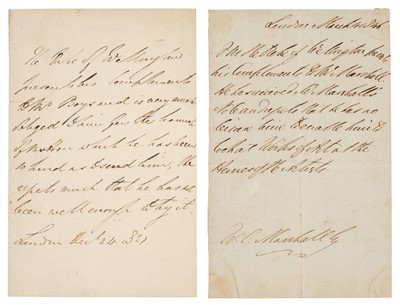 The Duke of Wellington
presents his Compliments
to Mr Boys and is very much
obliged to him for the
which he has been
so kind as to send him; He
regrets much that he has not
been well enough to try it.
London Decr 24
London March
F M the Duke of Wellington presents
his Compliments to Mr Marshall
He has received Mr Marshall's
Note and regrets that he has no
leisure time to enable him to
Works of Art at the
Houses of Artists.
W. C. Marshall